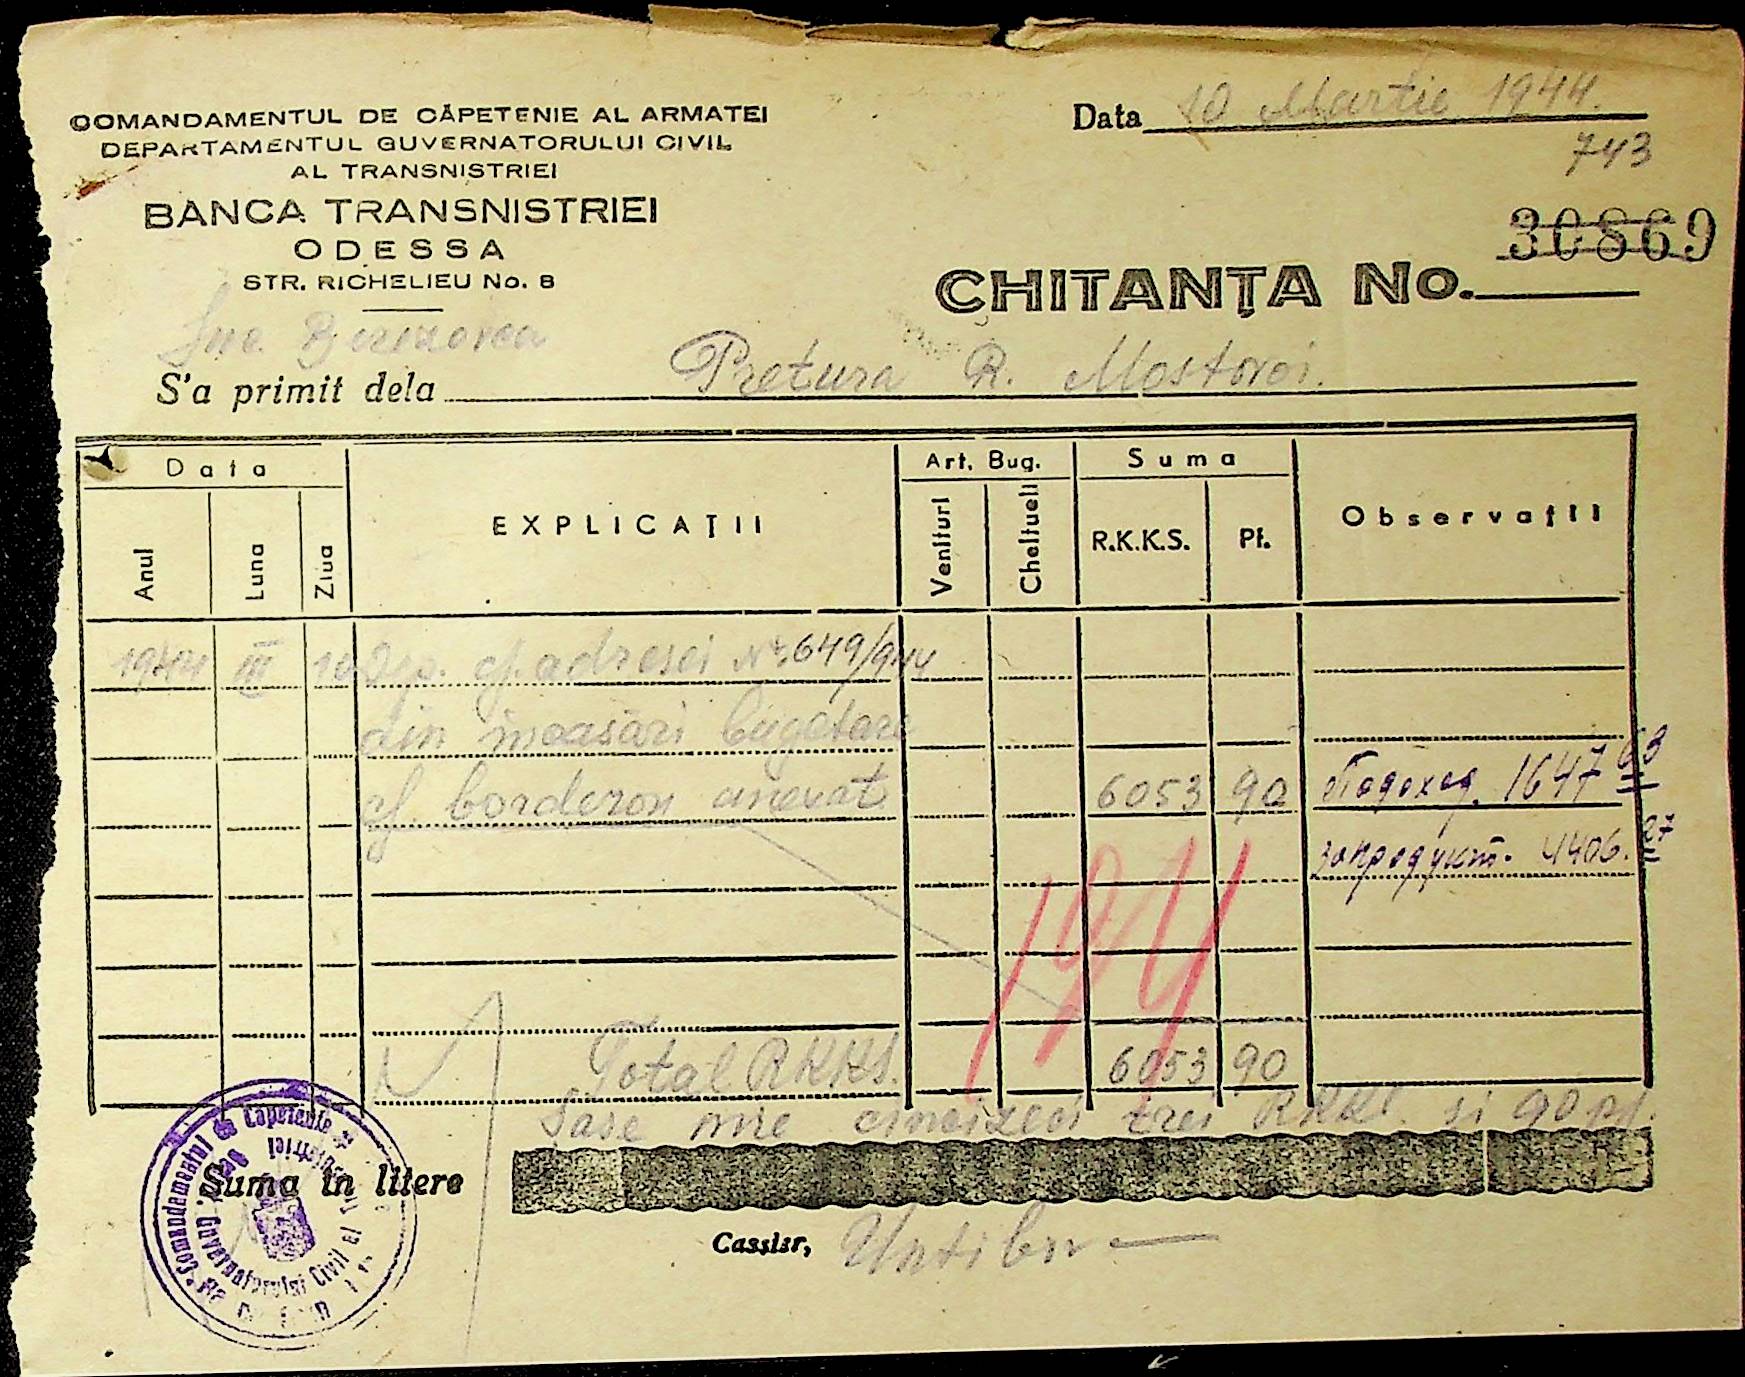 COMANDAMENTUL DE CĂPETENIE AL ARMATEI
DEPARTAMENTUL GUVERNATORULUI CIVIL
AL TRANSNISTRIEI
BANCA TRANSNISTRIEI
ODESSA
STR. RICHELIEU No. 8
Data 10 Martie 1944.
743
30869
CHITANȚA No.
Suc. Berezovca
S'a primit dela Pretura R. Mostovoi.
Data
Art. Bug.
Suma
Anul
Luna
Ziua
EXPLICAȚII
Venituri
Cheltueli
R.K.K.S.
Pf.
Observații
1944 III 10 Dep. cf. adresei Nr. 649/944
din încasări bugetare
cf. borderou anexat 6053 90 Подоход. 1647 63
запродукт. 4406. 27
191
Total RKKS. 6053 90
Șase mii cincizeci trei RKKS. și 90 pf.
Suma în litere
Cassier,
Comandamentul de Căpetenie al
Guvernatorului Civil al Transnistriei